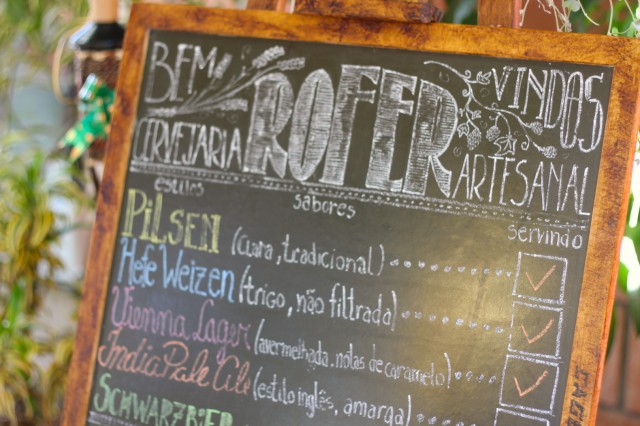 BEM VINDOS
CERVEJARIA ROFER ARTESANAL
estilos sabores servindo
PILSEN (clara, tradicional)
Hefe Weizen (trigo, não filtrada)
Vienna Lager (avermelhada, notas de caramelo)
India Pale Ale (estilo inglês, amarga)
SCHWARZBIER